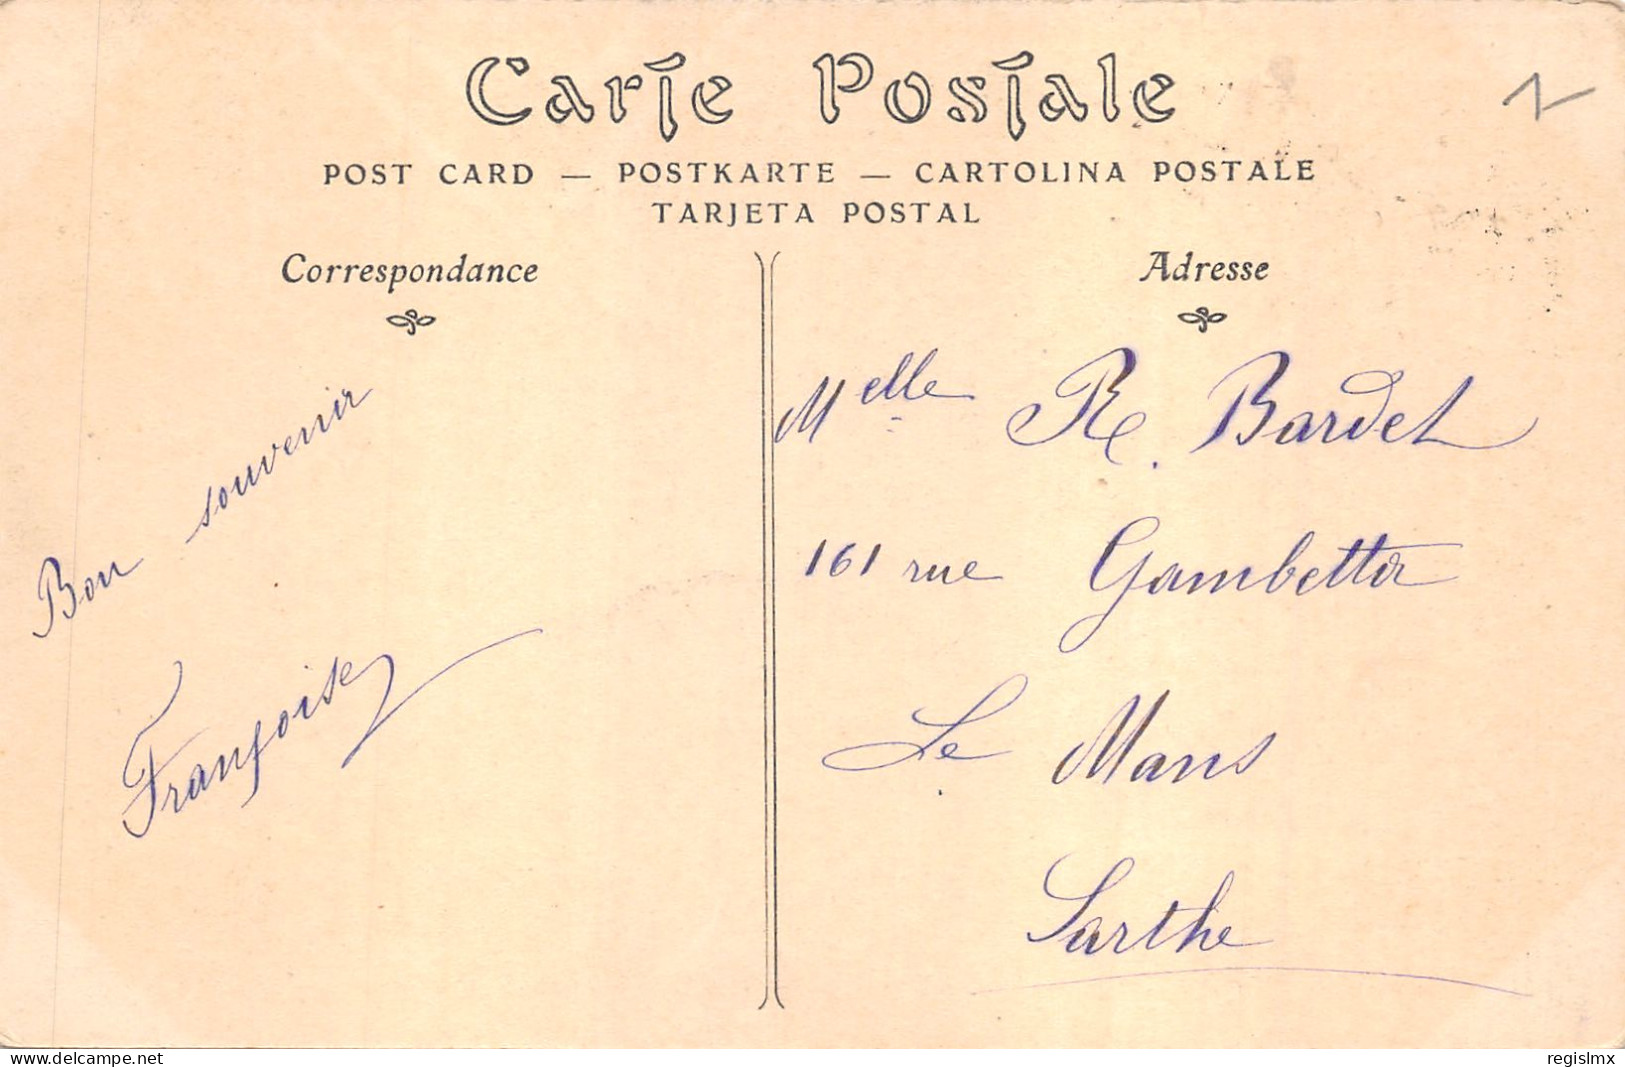 Carte Postale
POST CARD — POSTKARTE — CARTOLINA POSTALE
TARJETA POSTAL
Correspondance
Bon souvenir
Françoise
Adresse
Melle R. Bardet
161 rue Gambetta
Le Mans
Sarthe
delcampe.net
regislmx